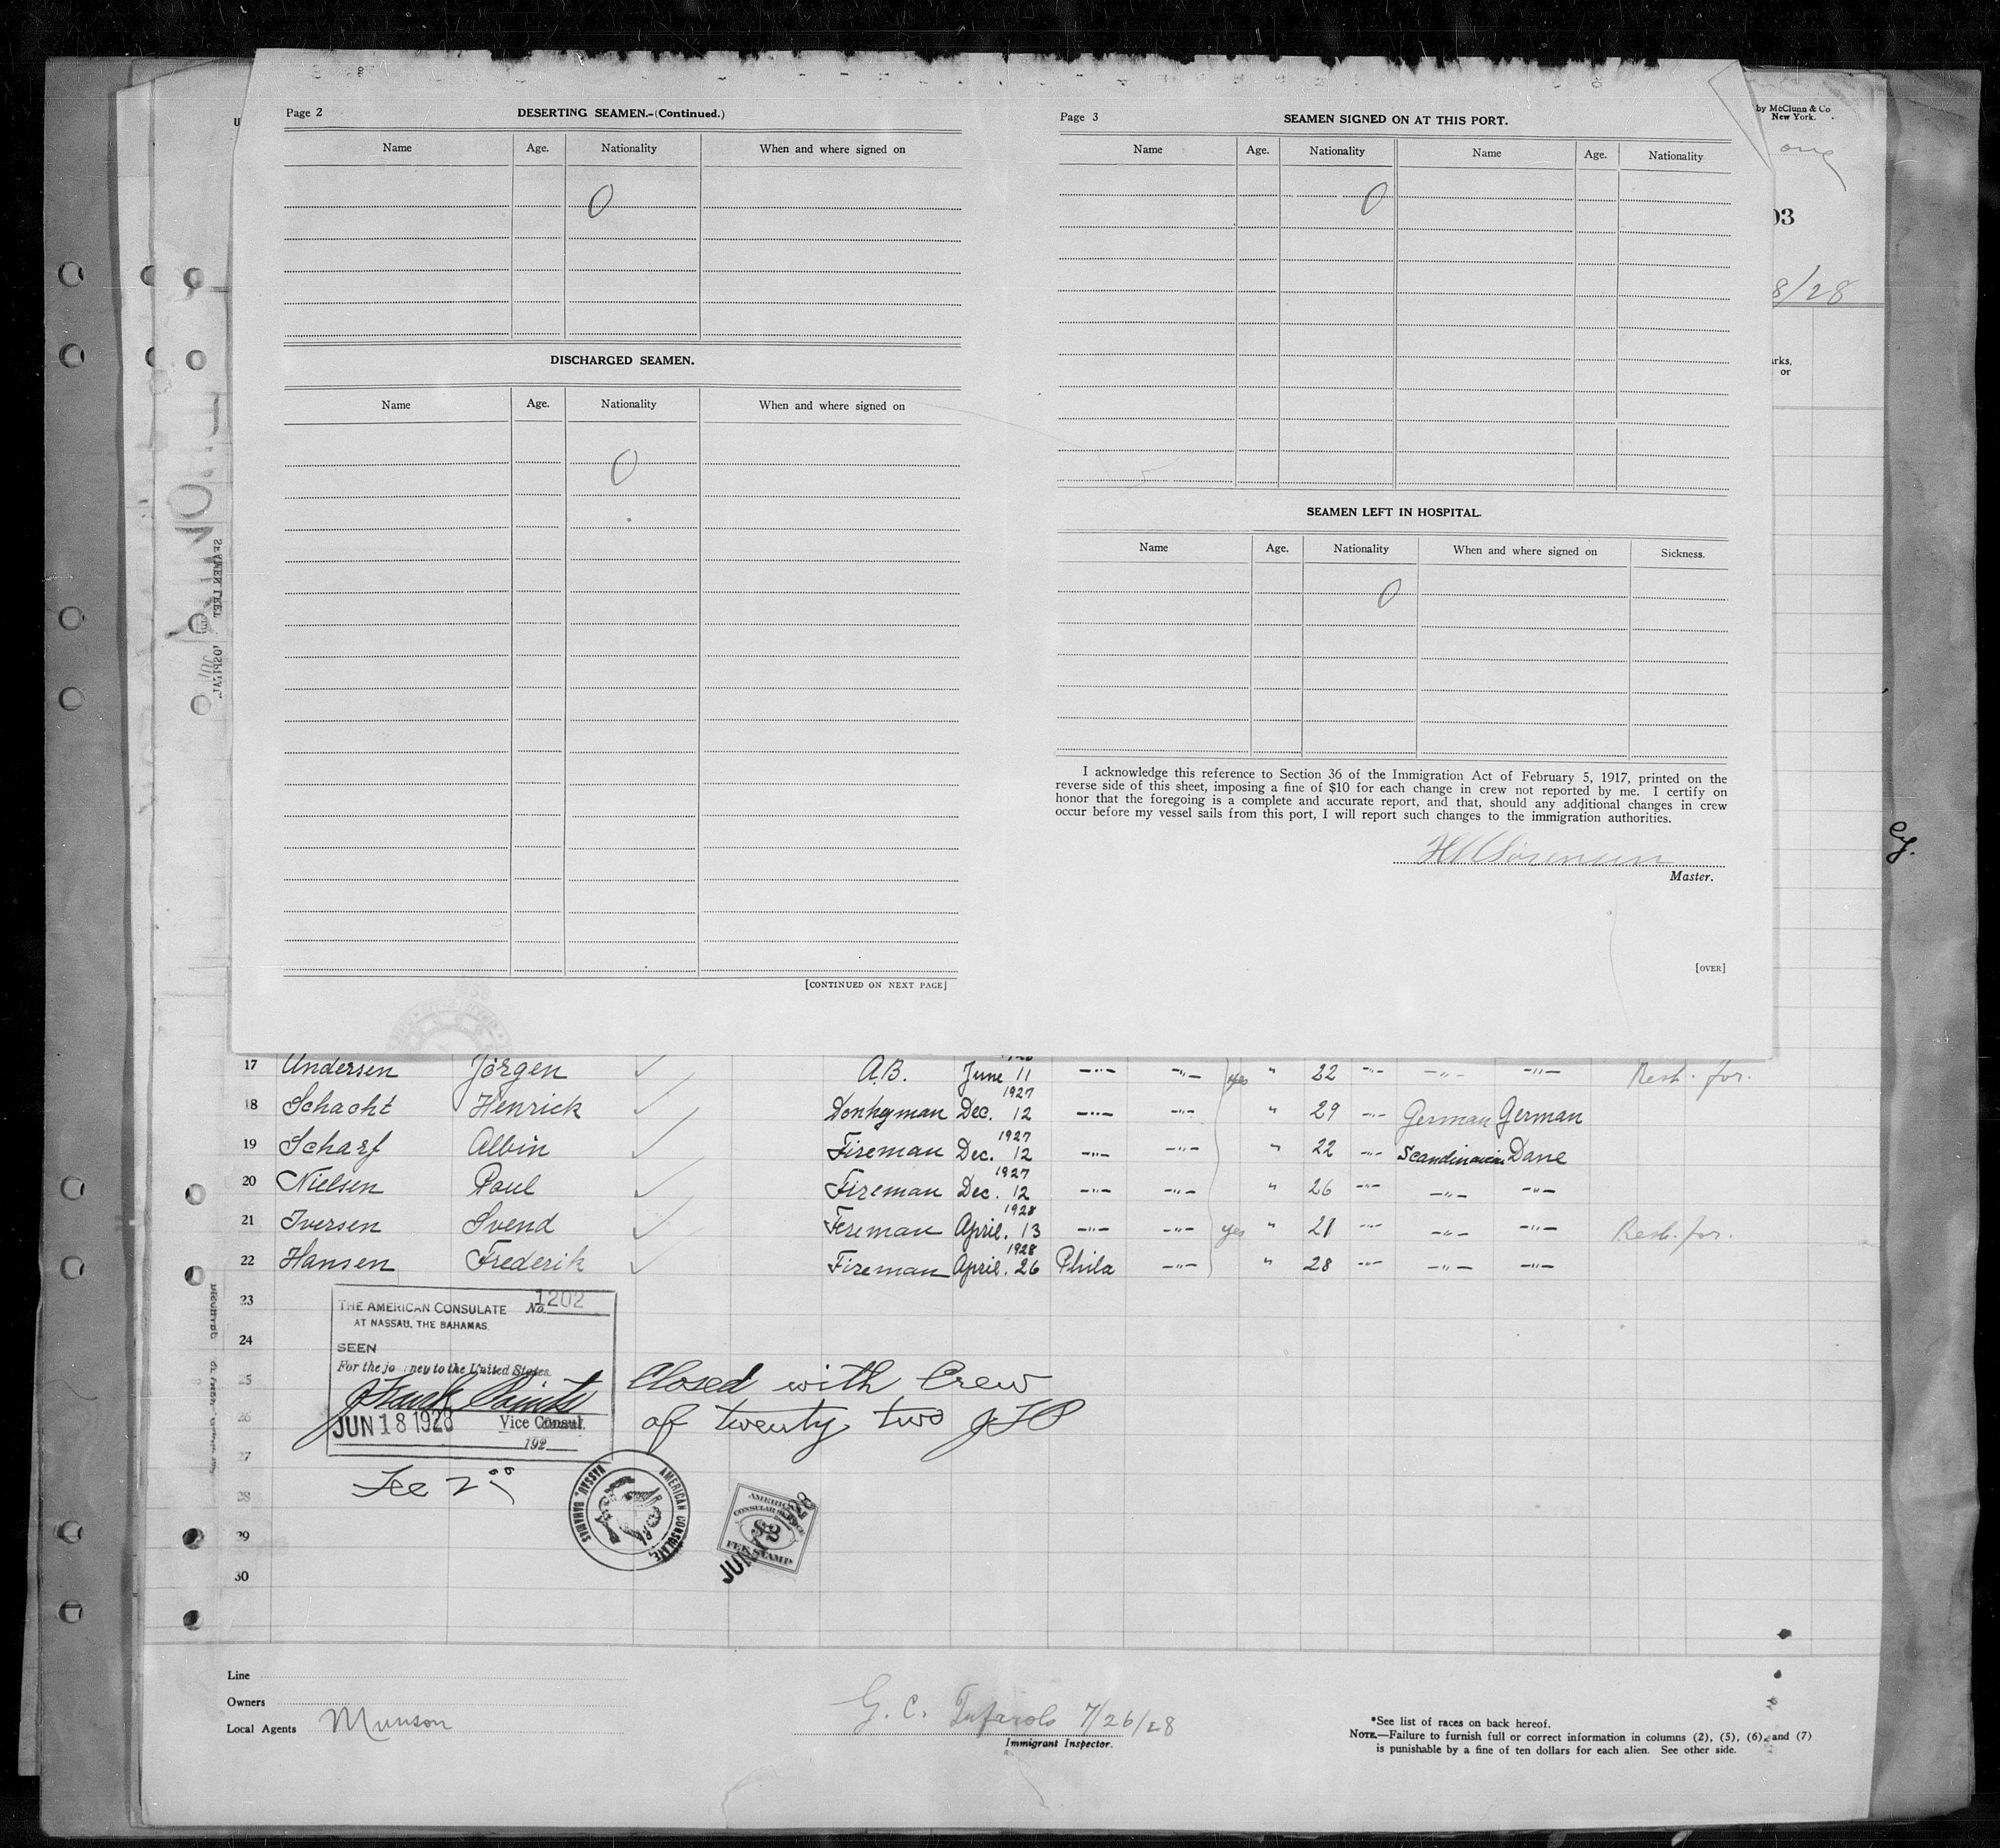 Page 2
DESERTING SEAMEN.-(Continued.)
Name Age. Nationality When and where signed on
0
DISCHARGED SEAMEN.
Name Age. Nationality When and where signed on
0
[CONTINUED ON NEXT PAGE]
Page 3
SEAMEN SIGNED ON AT THIS PORT.
Name Age. Nationality Name Age. Nationality
0
SEAMEN LEFT IN HOSPITAL.
Name Age. Nationality When and where signed on Sickness.
0
I acknowledge this reference to Section 36 of the Immigration Act of February 5, 1917, printed on the
reverse side of this sheet, imposing a fine of $10 for each change in crew not reported by me. I certify on
honor that the foregoing is a complete and accurate report, and that, should any additional changes in crew
occur before my vessel sails from this port, I will report such changes to the immigration authorities.
Sorensen
Master.
[OVER]
by McClunn & Co
New York.
03
8/28
or
17 Andersen Jörgen A.B. June 11 -"- -"- yes " 22 -"- -"- -"- Resh. for.
18 Schacht Henrick Donkyman Dec. 12 1927 -"- -"- " 29 -"- German German
19 Scharf Albin Fireman Dec. 12 1927 -"- -"- " 22 -"- Scandinavian Dane
20 Nielsen Poul Fireman Dec. 12 1927 -"- -"- " 26 -"- -"- -"-
21 Iversen Svend Fireman April. 13 1928 -"- -"- yes " 21 -"- -"- -"- Resh. for.
22 Hansen Frederik Fireman April. 26 1928 Phila -"- " 28 -"- -"- -"-
23
24
25
26
27
28
29
30
THE AMERICAN CONSULATE No. 1202
AT NASSAU, THE BAHAMAS
SEEN
For the journey to the United States
JUN 18 1928 Vice Consul.
192
Closed with Crew
of twenty two JFP
Fee 2 00
AMERICAN CONSULATE, NASSAU, BAHAMAS
AMERICAN
CONSULAR SERVICE
$2
FEE STAMP
JUN 18 1928
Line
Owners
Local Agents Munson
G. C. Tufarolo 7/26/28
Immigrant Inspector.
*See list of races on back hereof.
NOTE.—Failure to furnish full or correct information in columns (2), (5), (6) and (7)
is punishable by a fine of ten dollars for each alien. See other side.